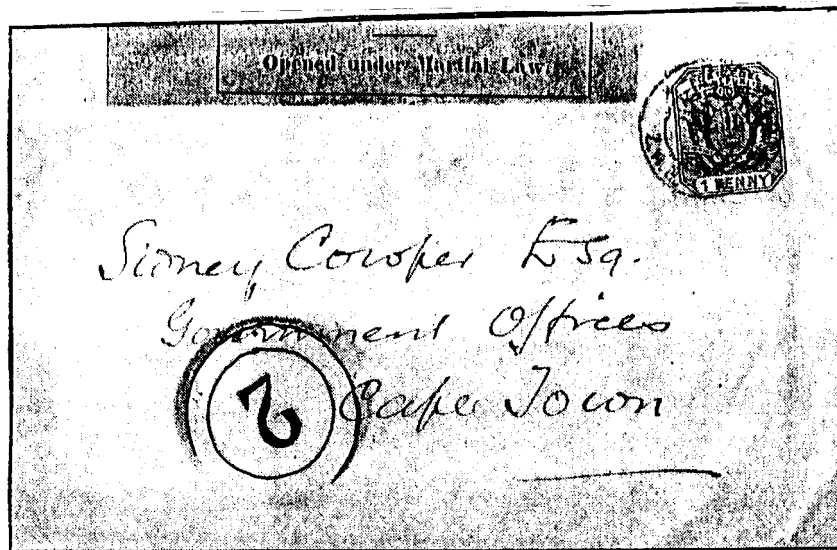 Opened under Martial Law
1 PENNY
Sidney Cowper Esq.
Government Offices
Cape Town
2